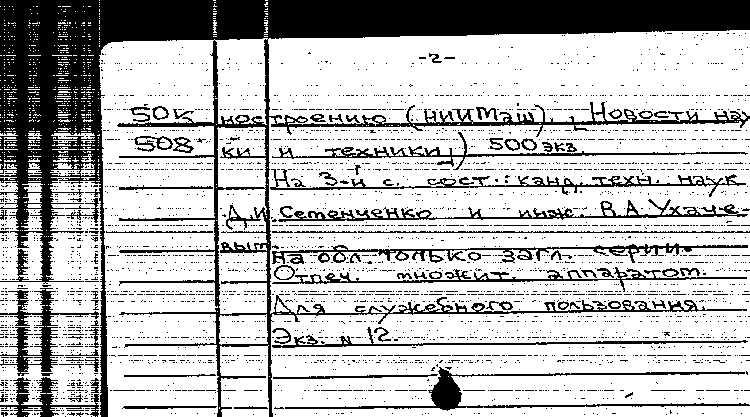 -2-
50к ностроению (НИИМаш). [Новости нау
508 ки и техники]) 500 экз.
На 3-й с. сост.: канд. техн. наук
Д.И. Сетенченко и инж. В.А. Ухаче-
вым
На обл. только загл. серии.
Отпеч. множит. аппаратом.
Для служебного пользования.
Экз. N 12.